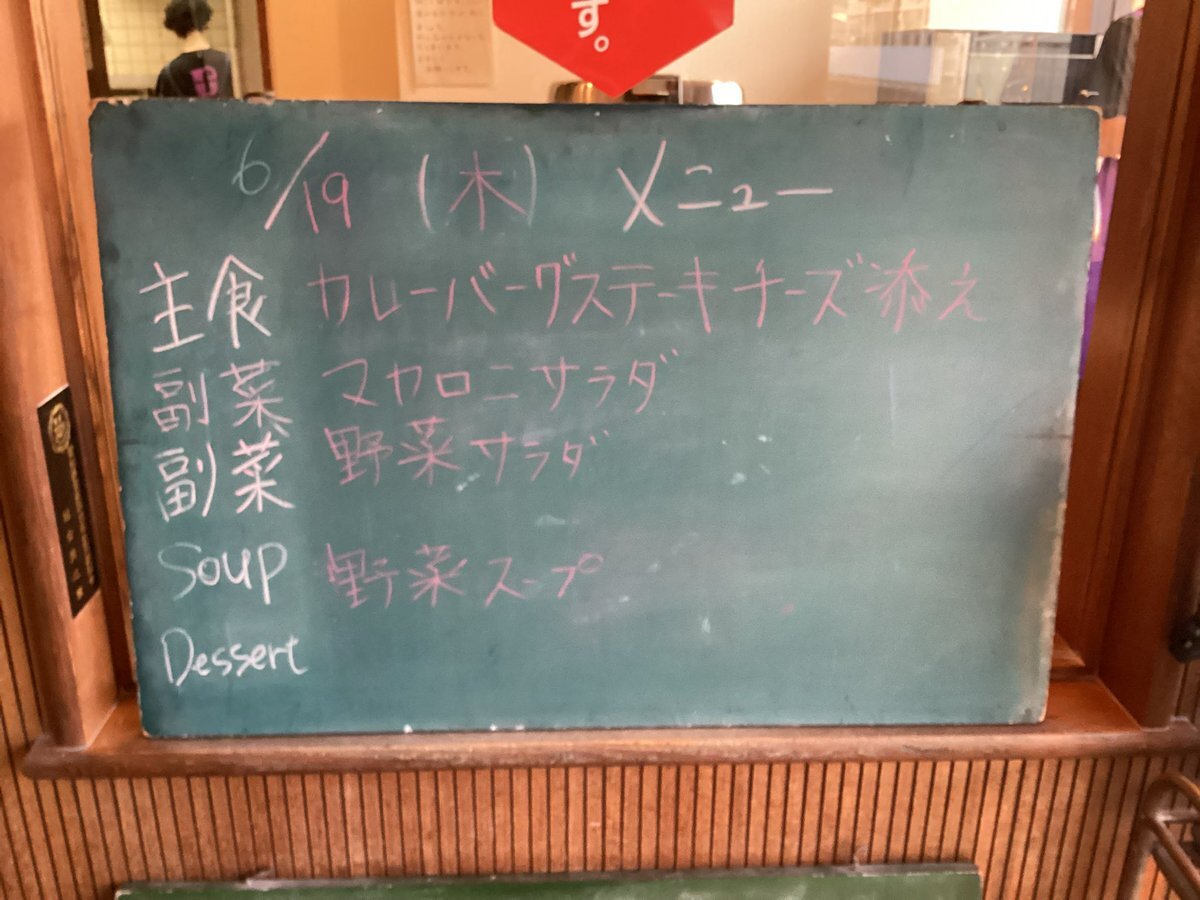 す。
6/19 (木) メニュー
主食 カレーバーグステーキチーズ添え
副菜 マカロニサラダ
副菜 野菜サラダ
Soup 野菜スープ
Dessert